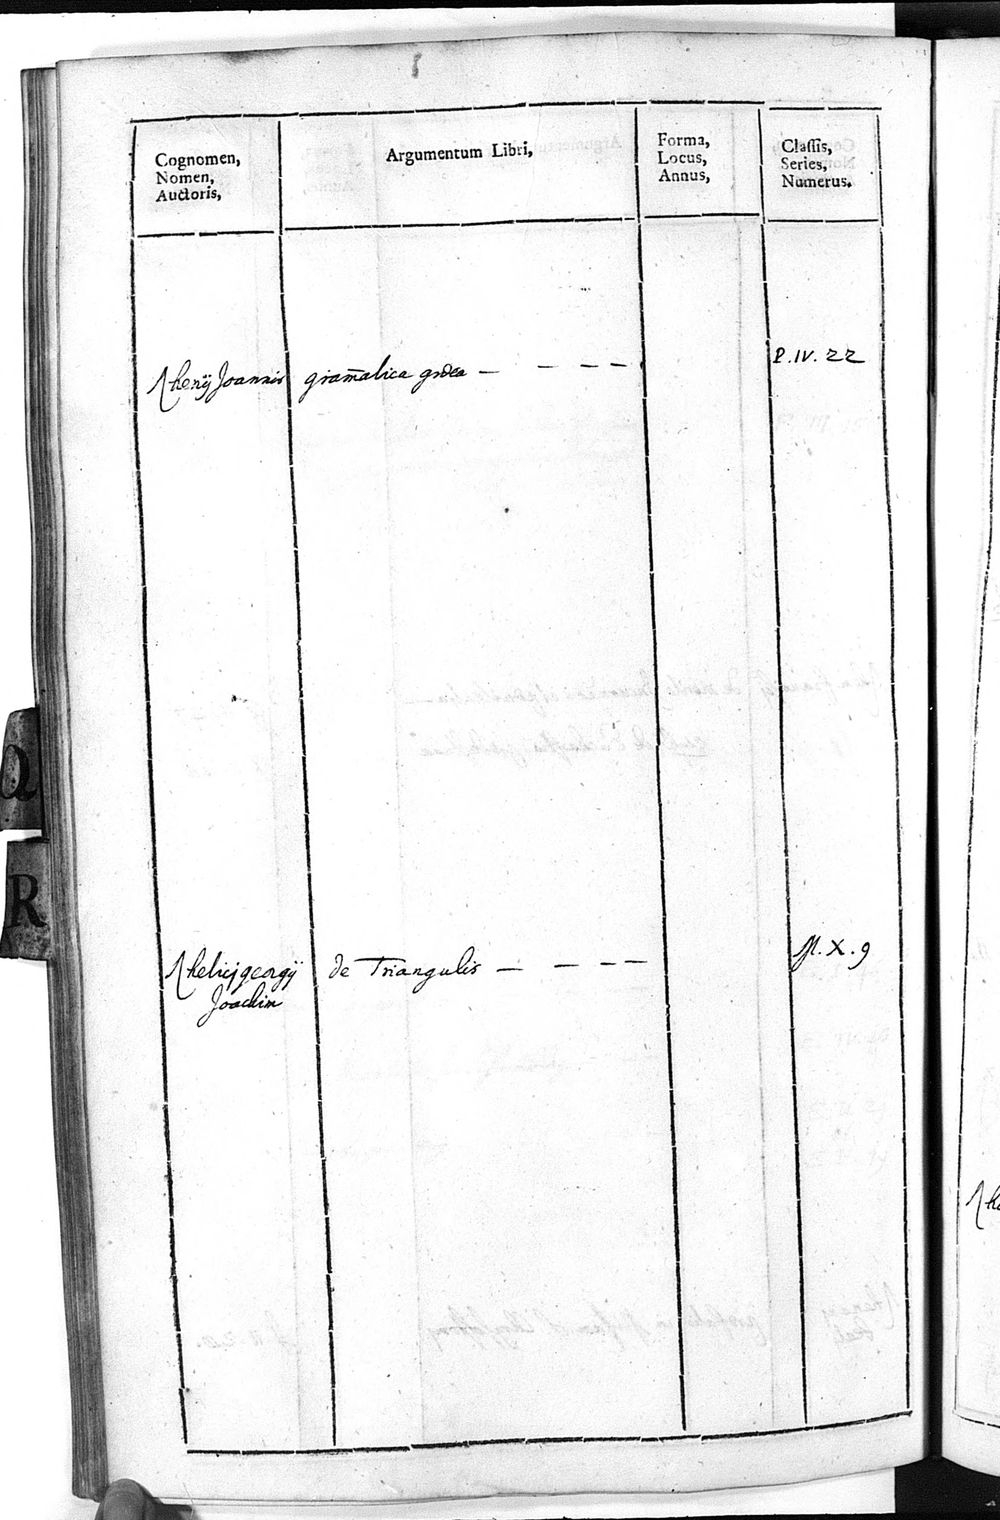 Cognomen,
Nomen,
Auctoris,
Argumentum Libri,
Forma,
Locus,
Annus,
Classis,
Series,
Numerus.
Rhenij Joannis gram̄atica græca — — — — P. IV. 22
Q
R
Rhetici georgij de Triangulis — — — — M. X. 9
Joachim